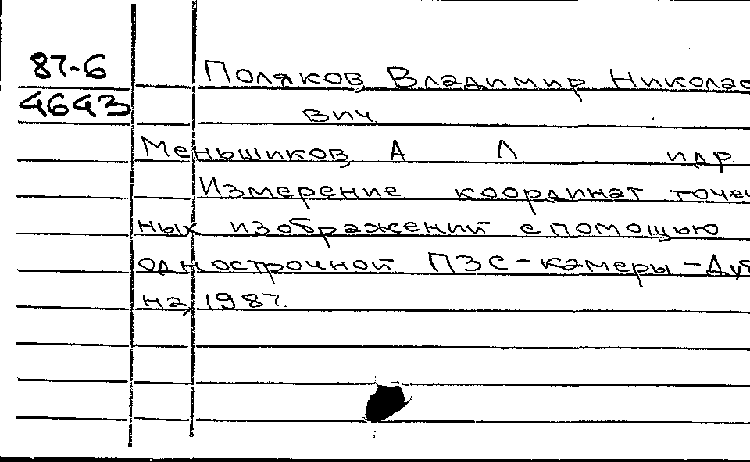 87-6
4643
Поляков Владимир Николае
вич
Меньшиков А Л и др
Измерение координат точеч
ных изображений с помощью
однострочной ПЗС-камеры -Дуб
на, 1987.